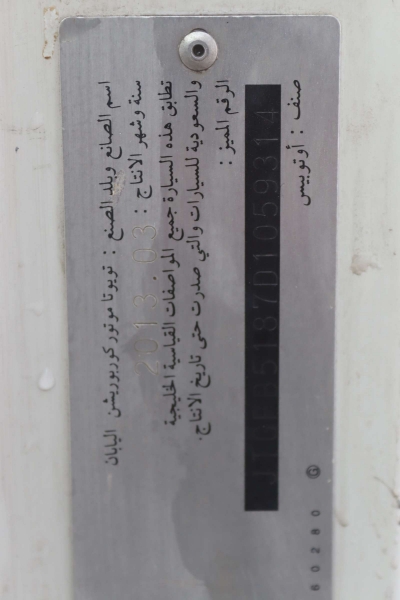 اسم الصانع وبلد الصنع : تويوتا موتور كوربوريشن اليابان
سنة وشهر الانتاج : 2013.03
تطابق هذه السيارة جميع المواصفات القياسية الخليجية
والسعودية للسيارات والتي صدرت حتى تاريخ الانتاج.
الرقم المميز :
JTGFB5187D1059314
صنف : أوتوبيس
60280